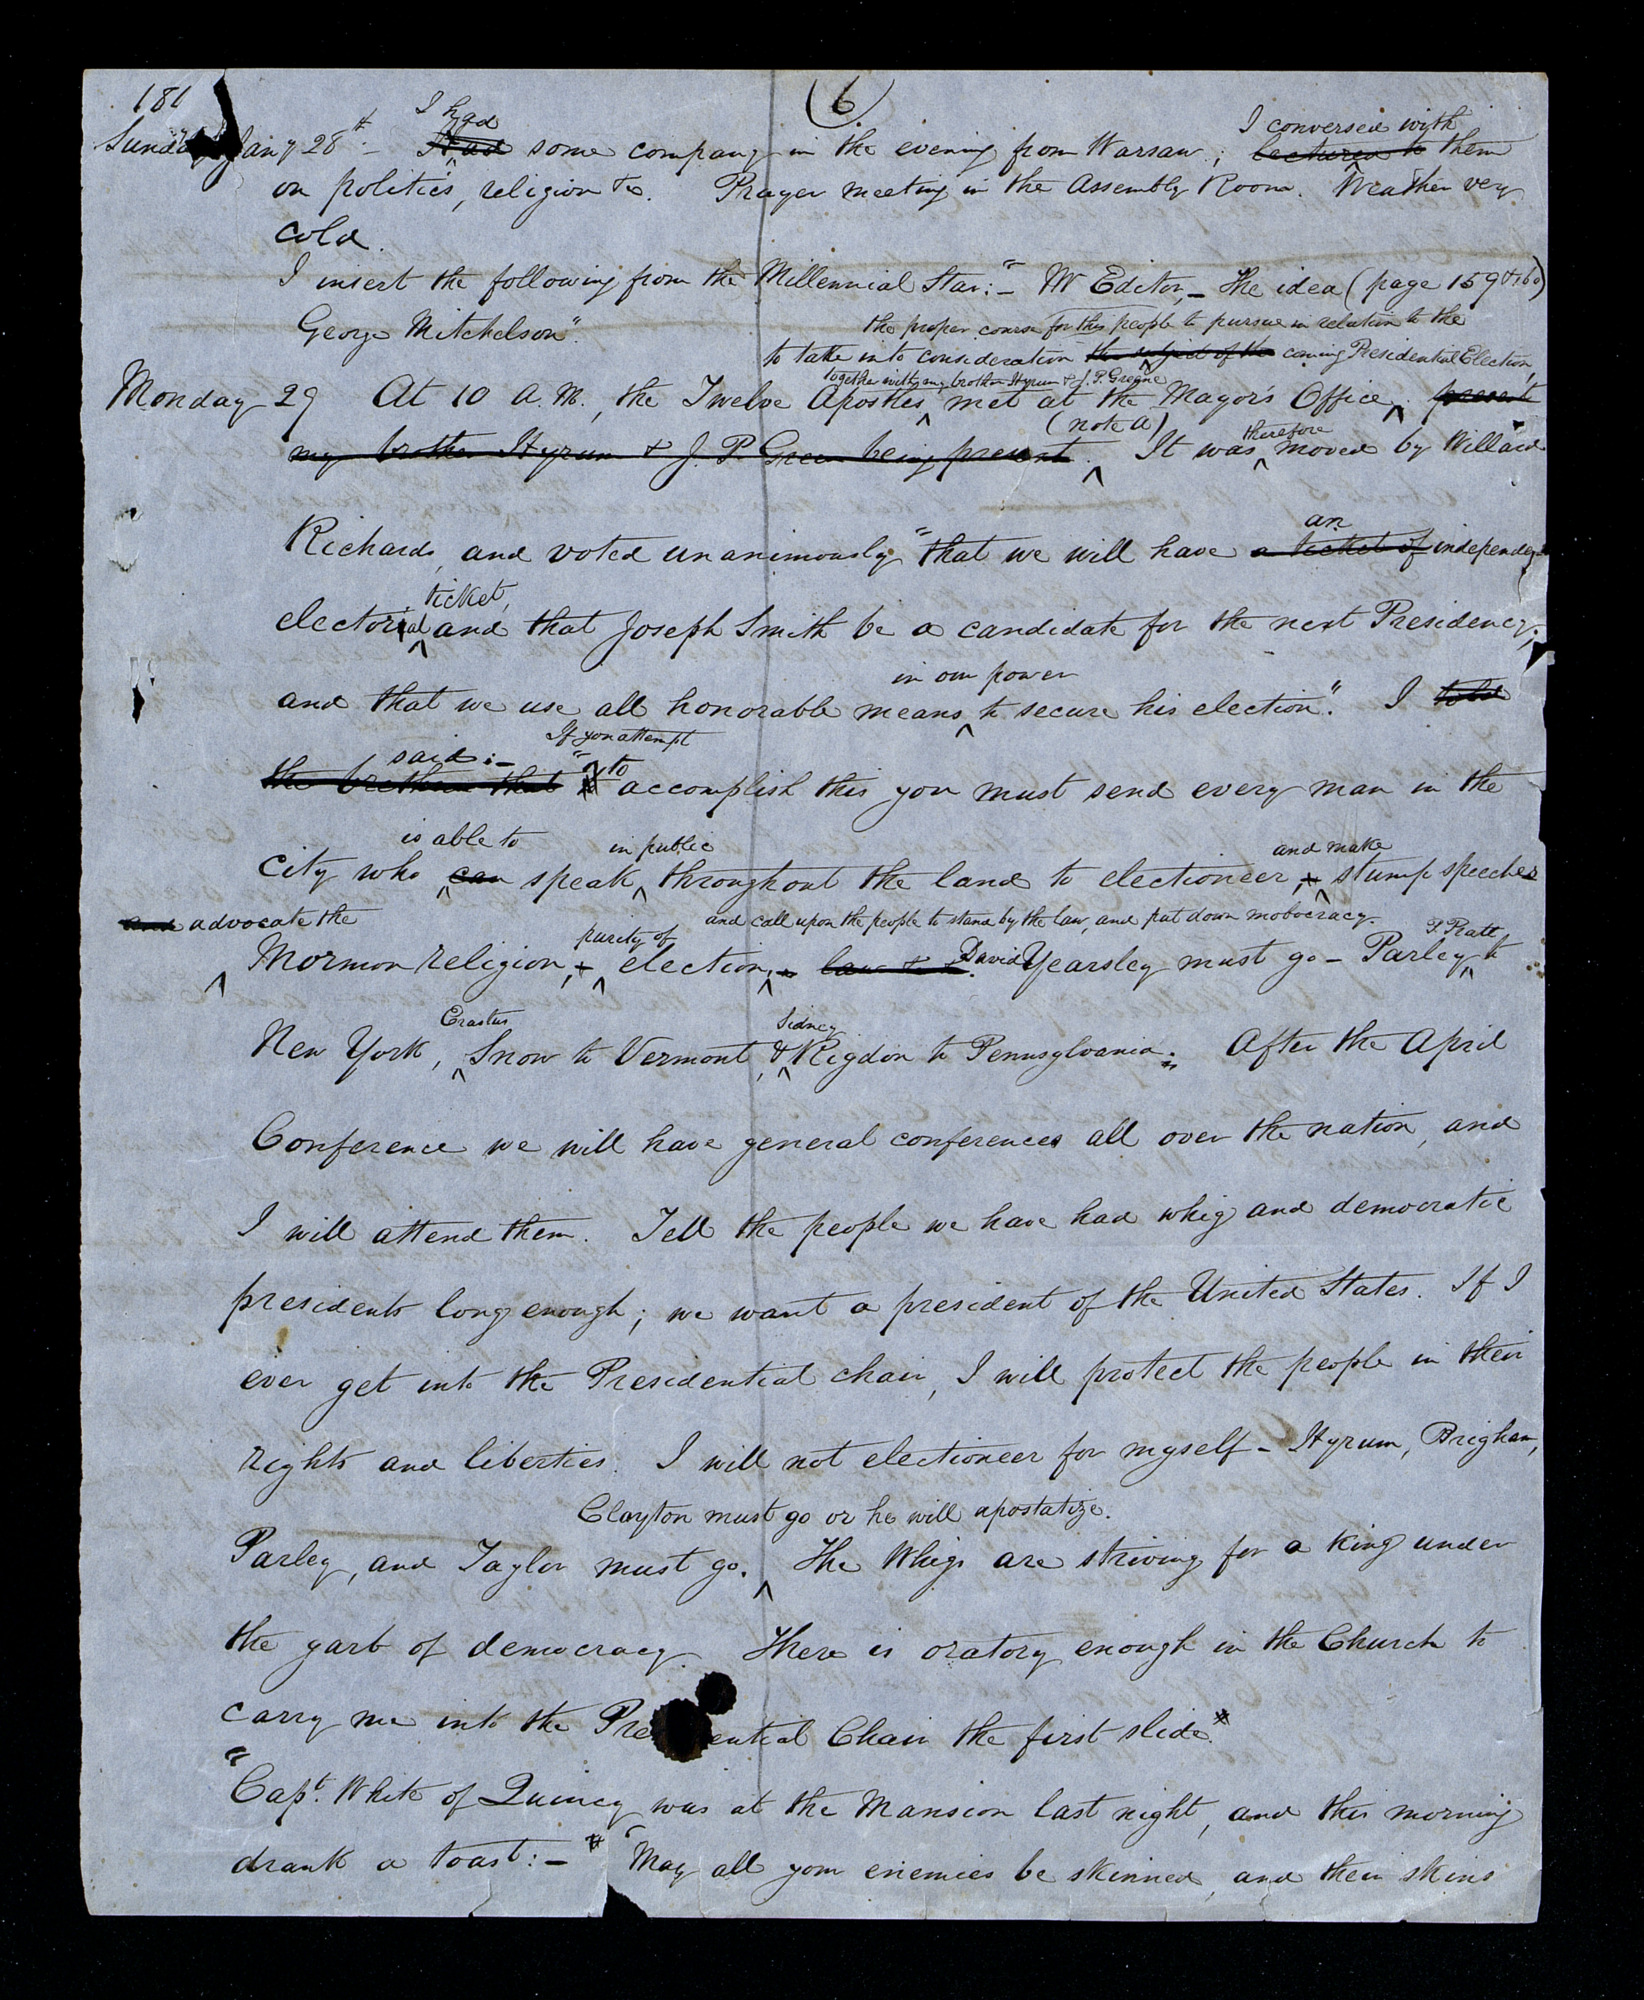 181
(6)
I had
Sunday Jany 28th – Had some company in the evening from Warsaw; lectured to them
I conversed with
on politics, religion &c. Prayer meeting in the Assembly Room. Weather very
cold.
I insert the following from the Millennial Star:– "Mr Editor,– The idea (page 159 & 160)
George Mitchelson".
the proper course for this people to pursue in relation to the
to take into consideration the subject of the coming Presidential Election,
together with my brother Hyrum & J. P. Greene
Monday 29 At 10 A.M., the Twelve Apostles ^ met at the Mayor's Office ^. present
(note A) therefore
my brother Hyrum & J. P. Green being present. ^ It was ^ moved by Willard
an
Richards, and voted unanimously "that we will have a ticket of independent
ticket,
electorial ^ and that Joseph Smith be a candidate for the next Presidency;
in our power
and that we use all honorable means ^ to secure his election". I told
said:– "If you attempt to
the brethren that accomplish this you must send every man in the
is able to in public and make
city who ^ can speak ^ throughout the land to electioneer, ^ stump speeches
and advocate the purity of and call upon the people to stand by the law, and put down mobocracy.
^ Mormon religion, ^ election, ^ law David Yearsley must go – Parley ^ to
P. Pratt
Erastus Sidney
New York, ^ Snow to Vermont, & ^ Rigdon to Pennsylvania. After the April
Conference we will have general conferences all over the nation, and
I will attend them. Tell the people we have had whig and democratic
presidents long enough; we want a president of the United States. If I
ever get into the Presidential chair, I will protect the people in their
rights and liberties. I will not electioneer for myself – Hyrum, Brigham,
Clayton must go or he will apostatize.
Parley, and Taylor must go. ^ The Whigs are striving for a king under
the garb of democracy. There is oratory enough in the Church to
carry me into the Pre ential Chair the first slide."
"Capt. White of Quincy was at the Mansion last night, and this morning
drank a toast:– "May all your enemies be skinned, and their skins